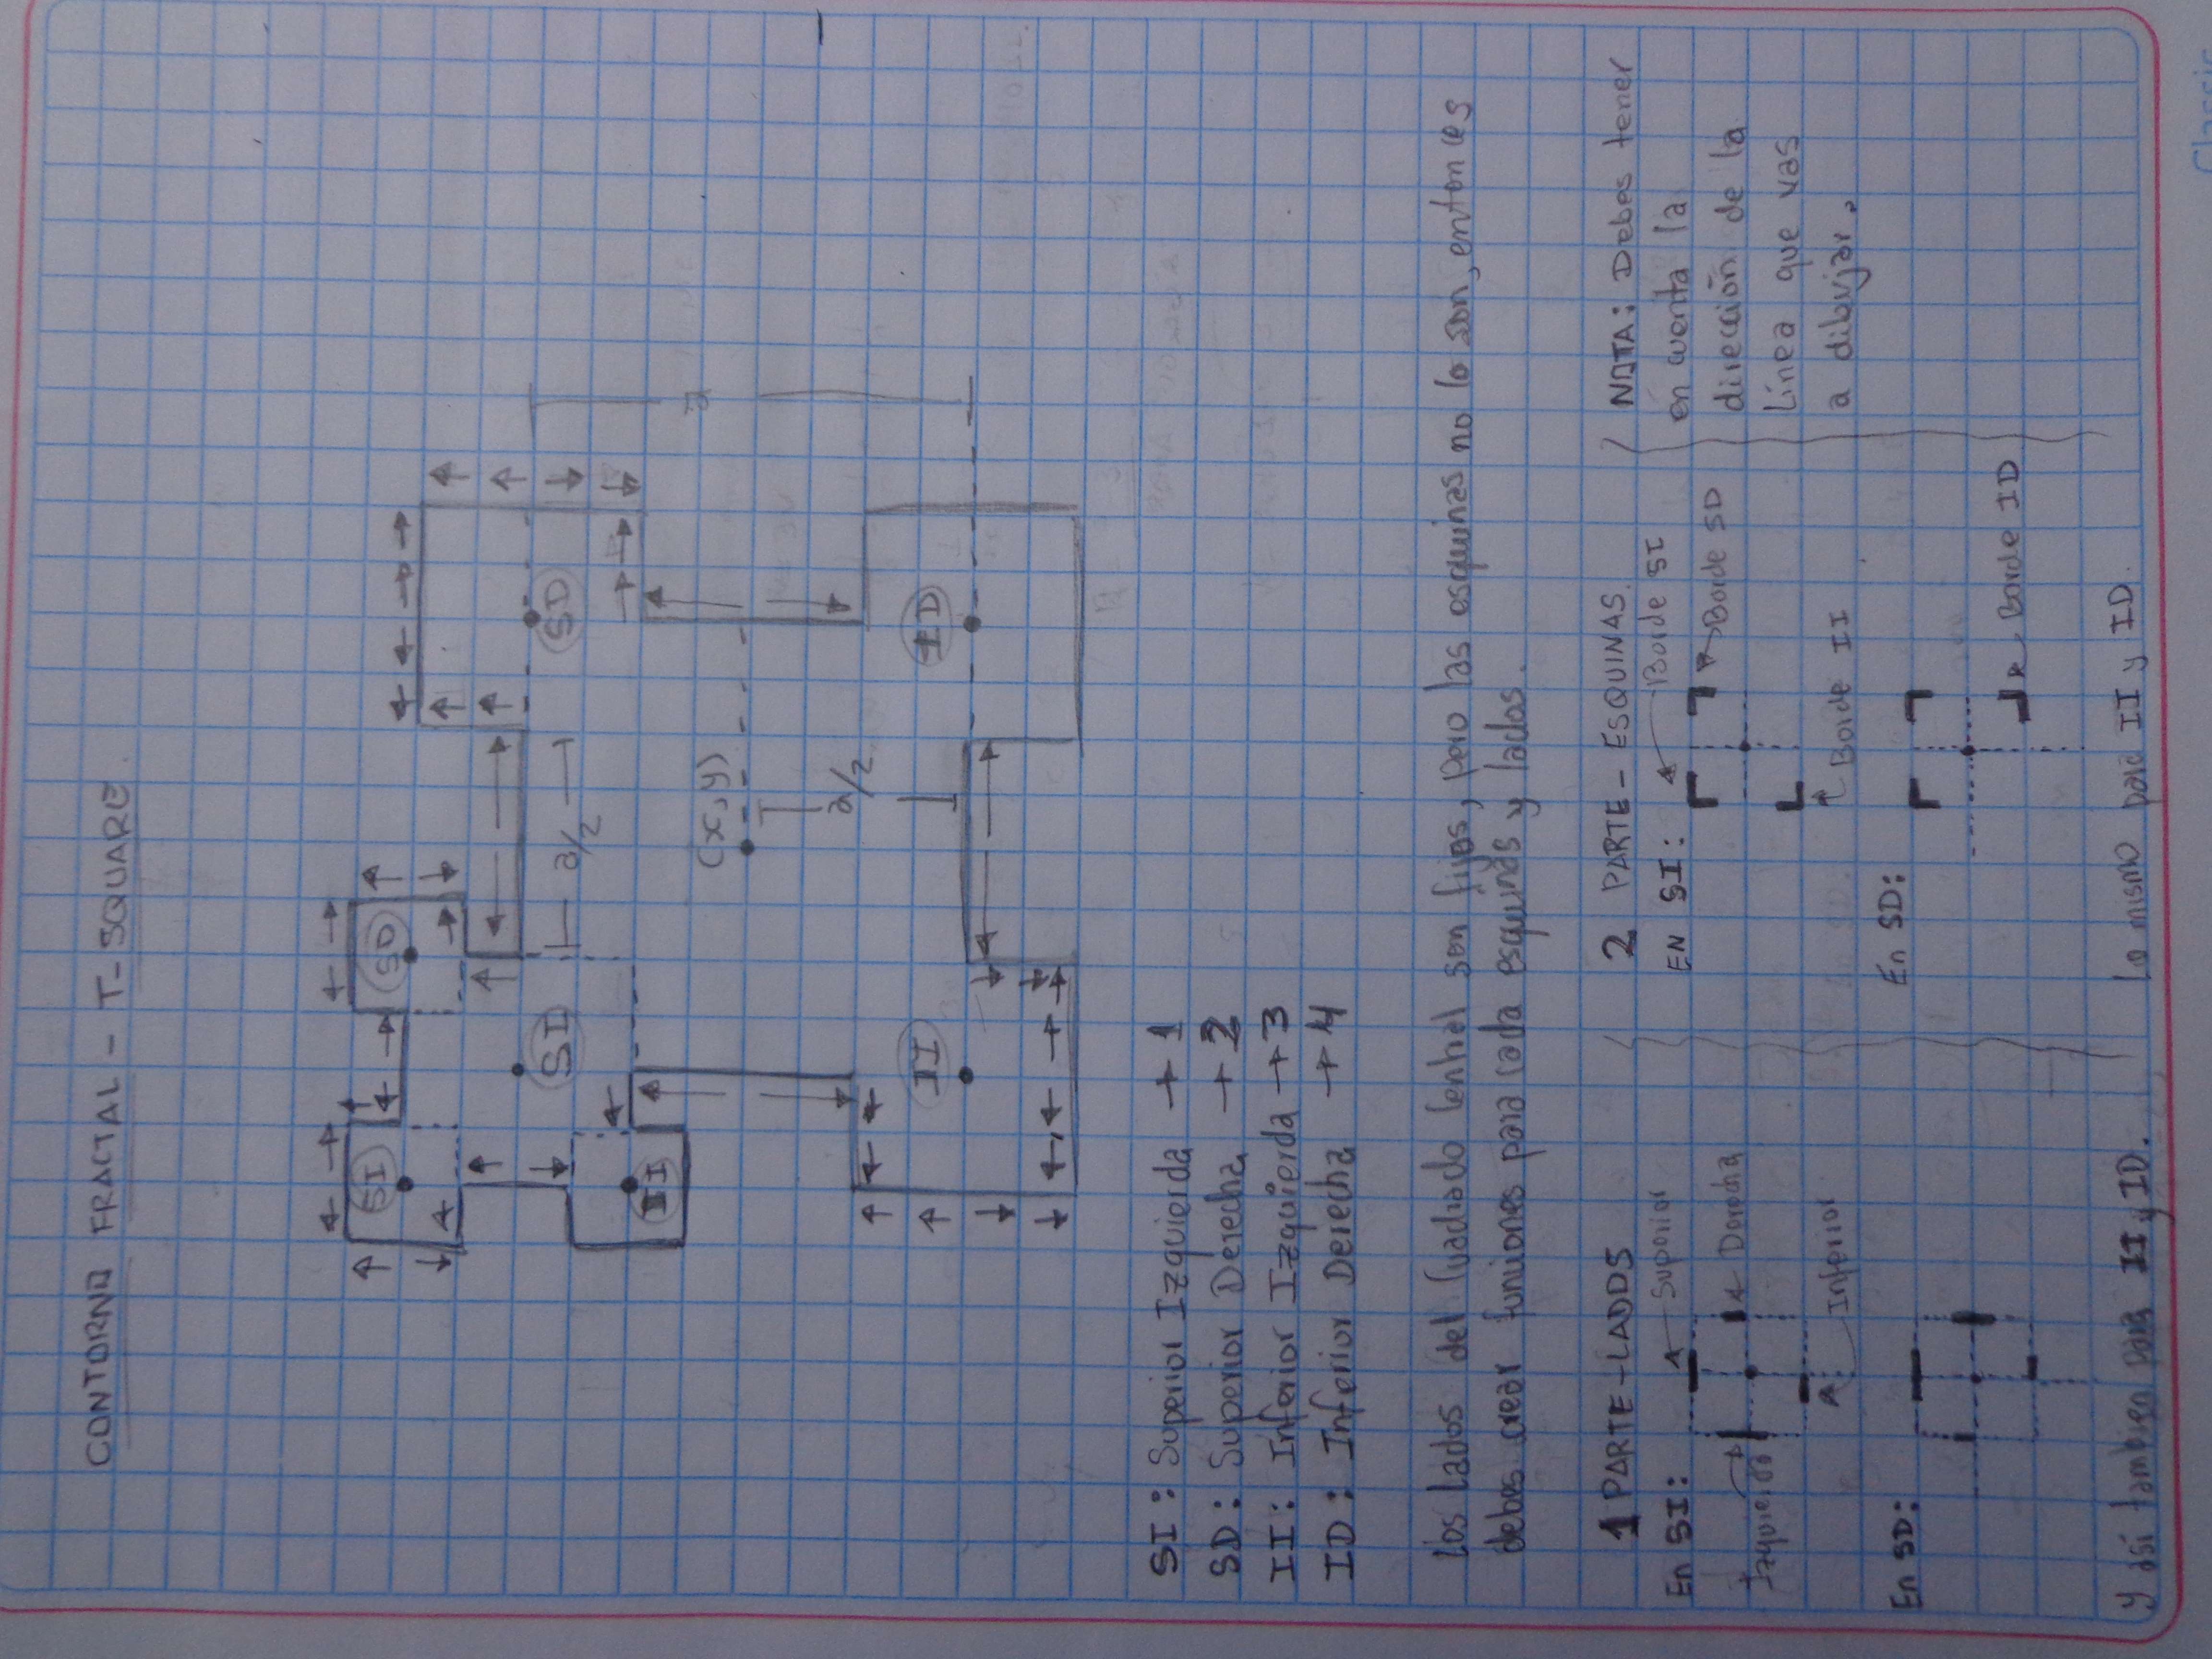 CONTORNO FRACTAL - T-SQUARE.
SI
SD
SI
a/2
SD
II
(x,y)
a
a/2
II
ID
SI: Superior Izquierda → 1
SD: Superior Derecha → 2
II: Inferior Izquierda → 3
ID: Inferior Derecha → 4
Los lados del Cuadrado Central son fijos, pero las esquinas no lo son, entonces
debes crear funciones para cada esquinas y lados.
1 PARTE-LADOS
En SI:
Superior
Derecha
Izquierda
Inferior
En SD:
Y así tambien para II y ID.
2 PARTE - ESQUINAS.
EN SI:
Borde SI
Borde SD
Borde II
En SD:
Borde ID
Lo mismo para II y ID.
NOTA: Debes tener
en cuenta la
dirección de la
Línea que vas
a dibujar.
Classic